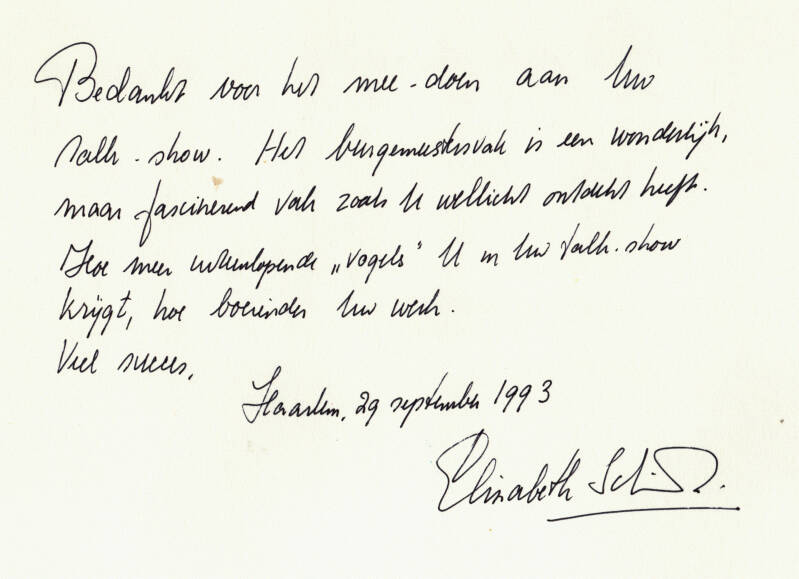 Bedankt voor het mee-doen aan Uw
talk-show. Het burgemeestersvak is een wonderlijk,
maar fascinerend vak zoals U wellicht ontdekt heeft.
Hoe meer uiteenlopende „vogels" U in Uw talk-show
krijgt, hoe boeiender Uw werk.
Viel succes,
Haarlem, 29 september 1993
Elisabeth Schmitz.